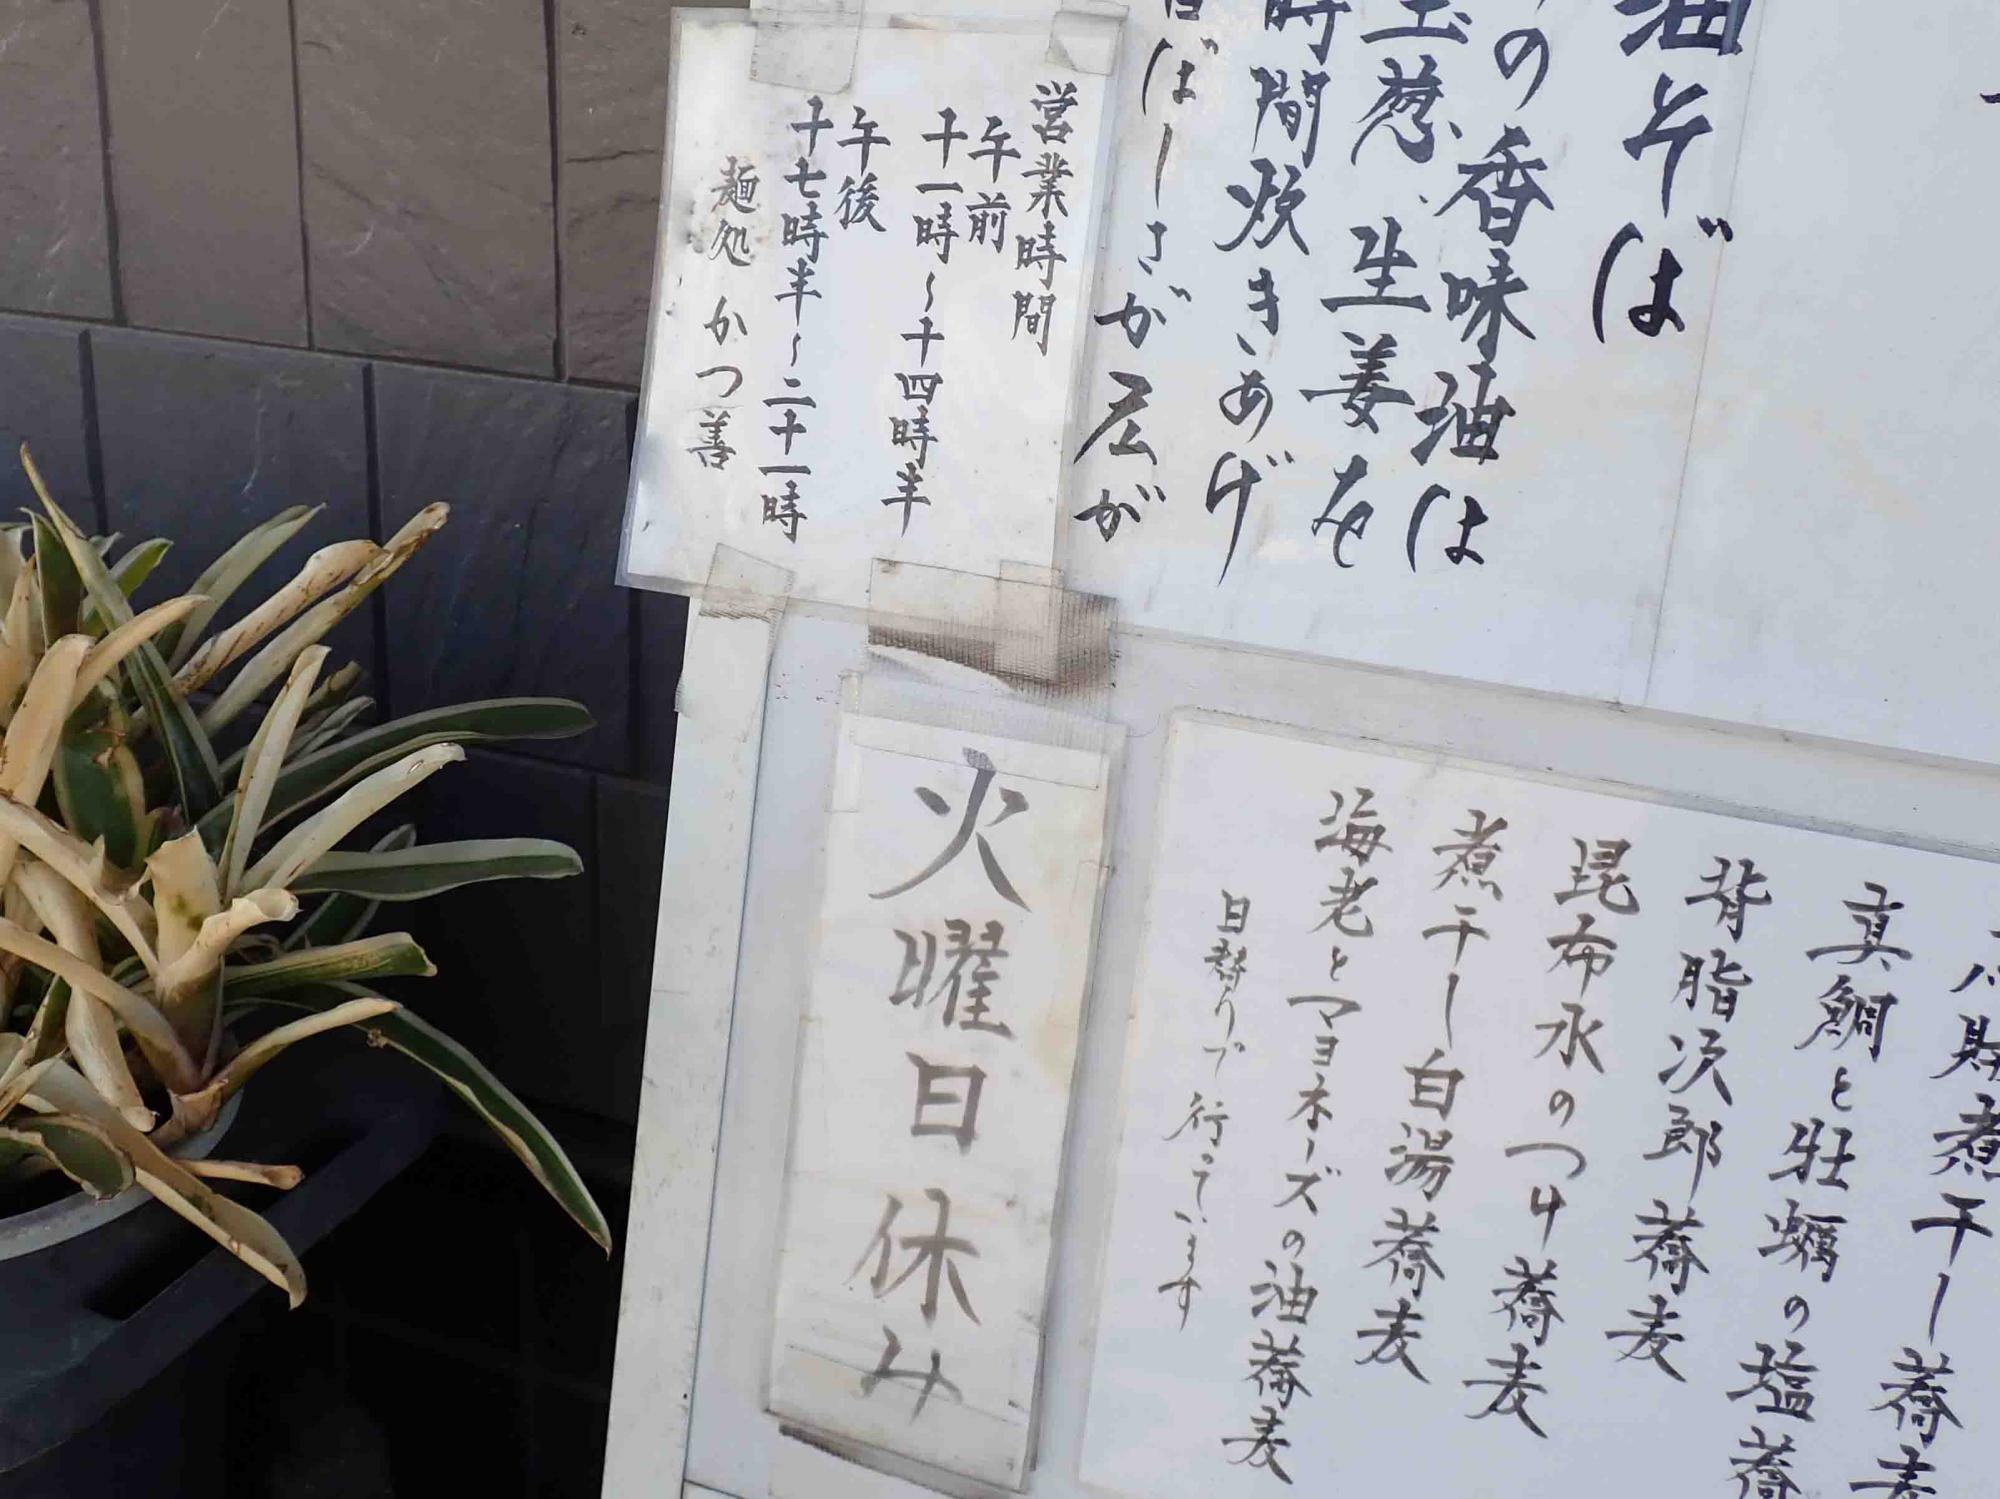 営業時間
午前
十一時～十四時半
午後
十七時半～二十一時
麺処 かつ善
油そば
の香味油は
玉葱、生姜を
時間炊きあげ
香ばしさが広が
火曜日休み
煮干し蕎麦
真鯛と牡蠣の塩蕎
背脂次郎蕎麦
昆布水のつけ蕎麦
煮干し白湯蕎麦
海老とマヨネーズの油蕎麦
日替りで行っています